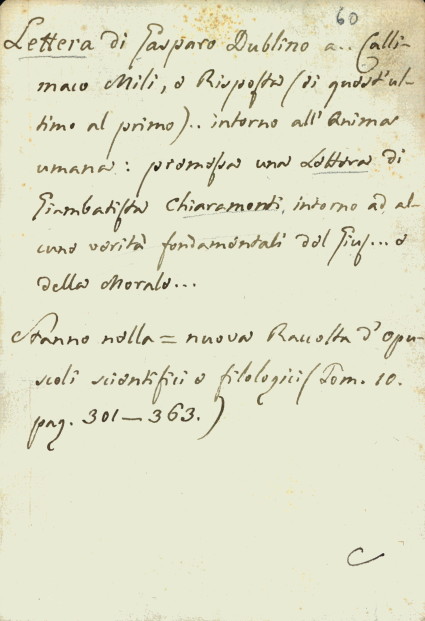 60
Lettera di Gasparo Dublino a.. Calli-
maco Mili, e Risposta (di quest'ul-
timo al primo).. intorno all'Anima
umana: premessa una Lettera di
Giambatista Chiaramonti, intorno ad al-
cune verità fondamentali del Gius... e
della Morale...
Stanno nella = nuova Raccolta d'Opu-
scoli scientifici e filologici (Tom. 10.
pag. 301-363.)
C